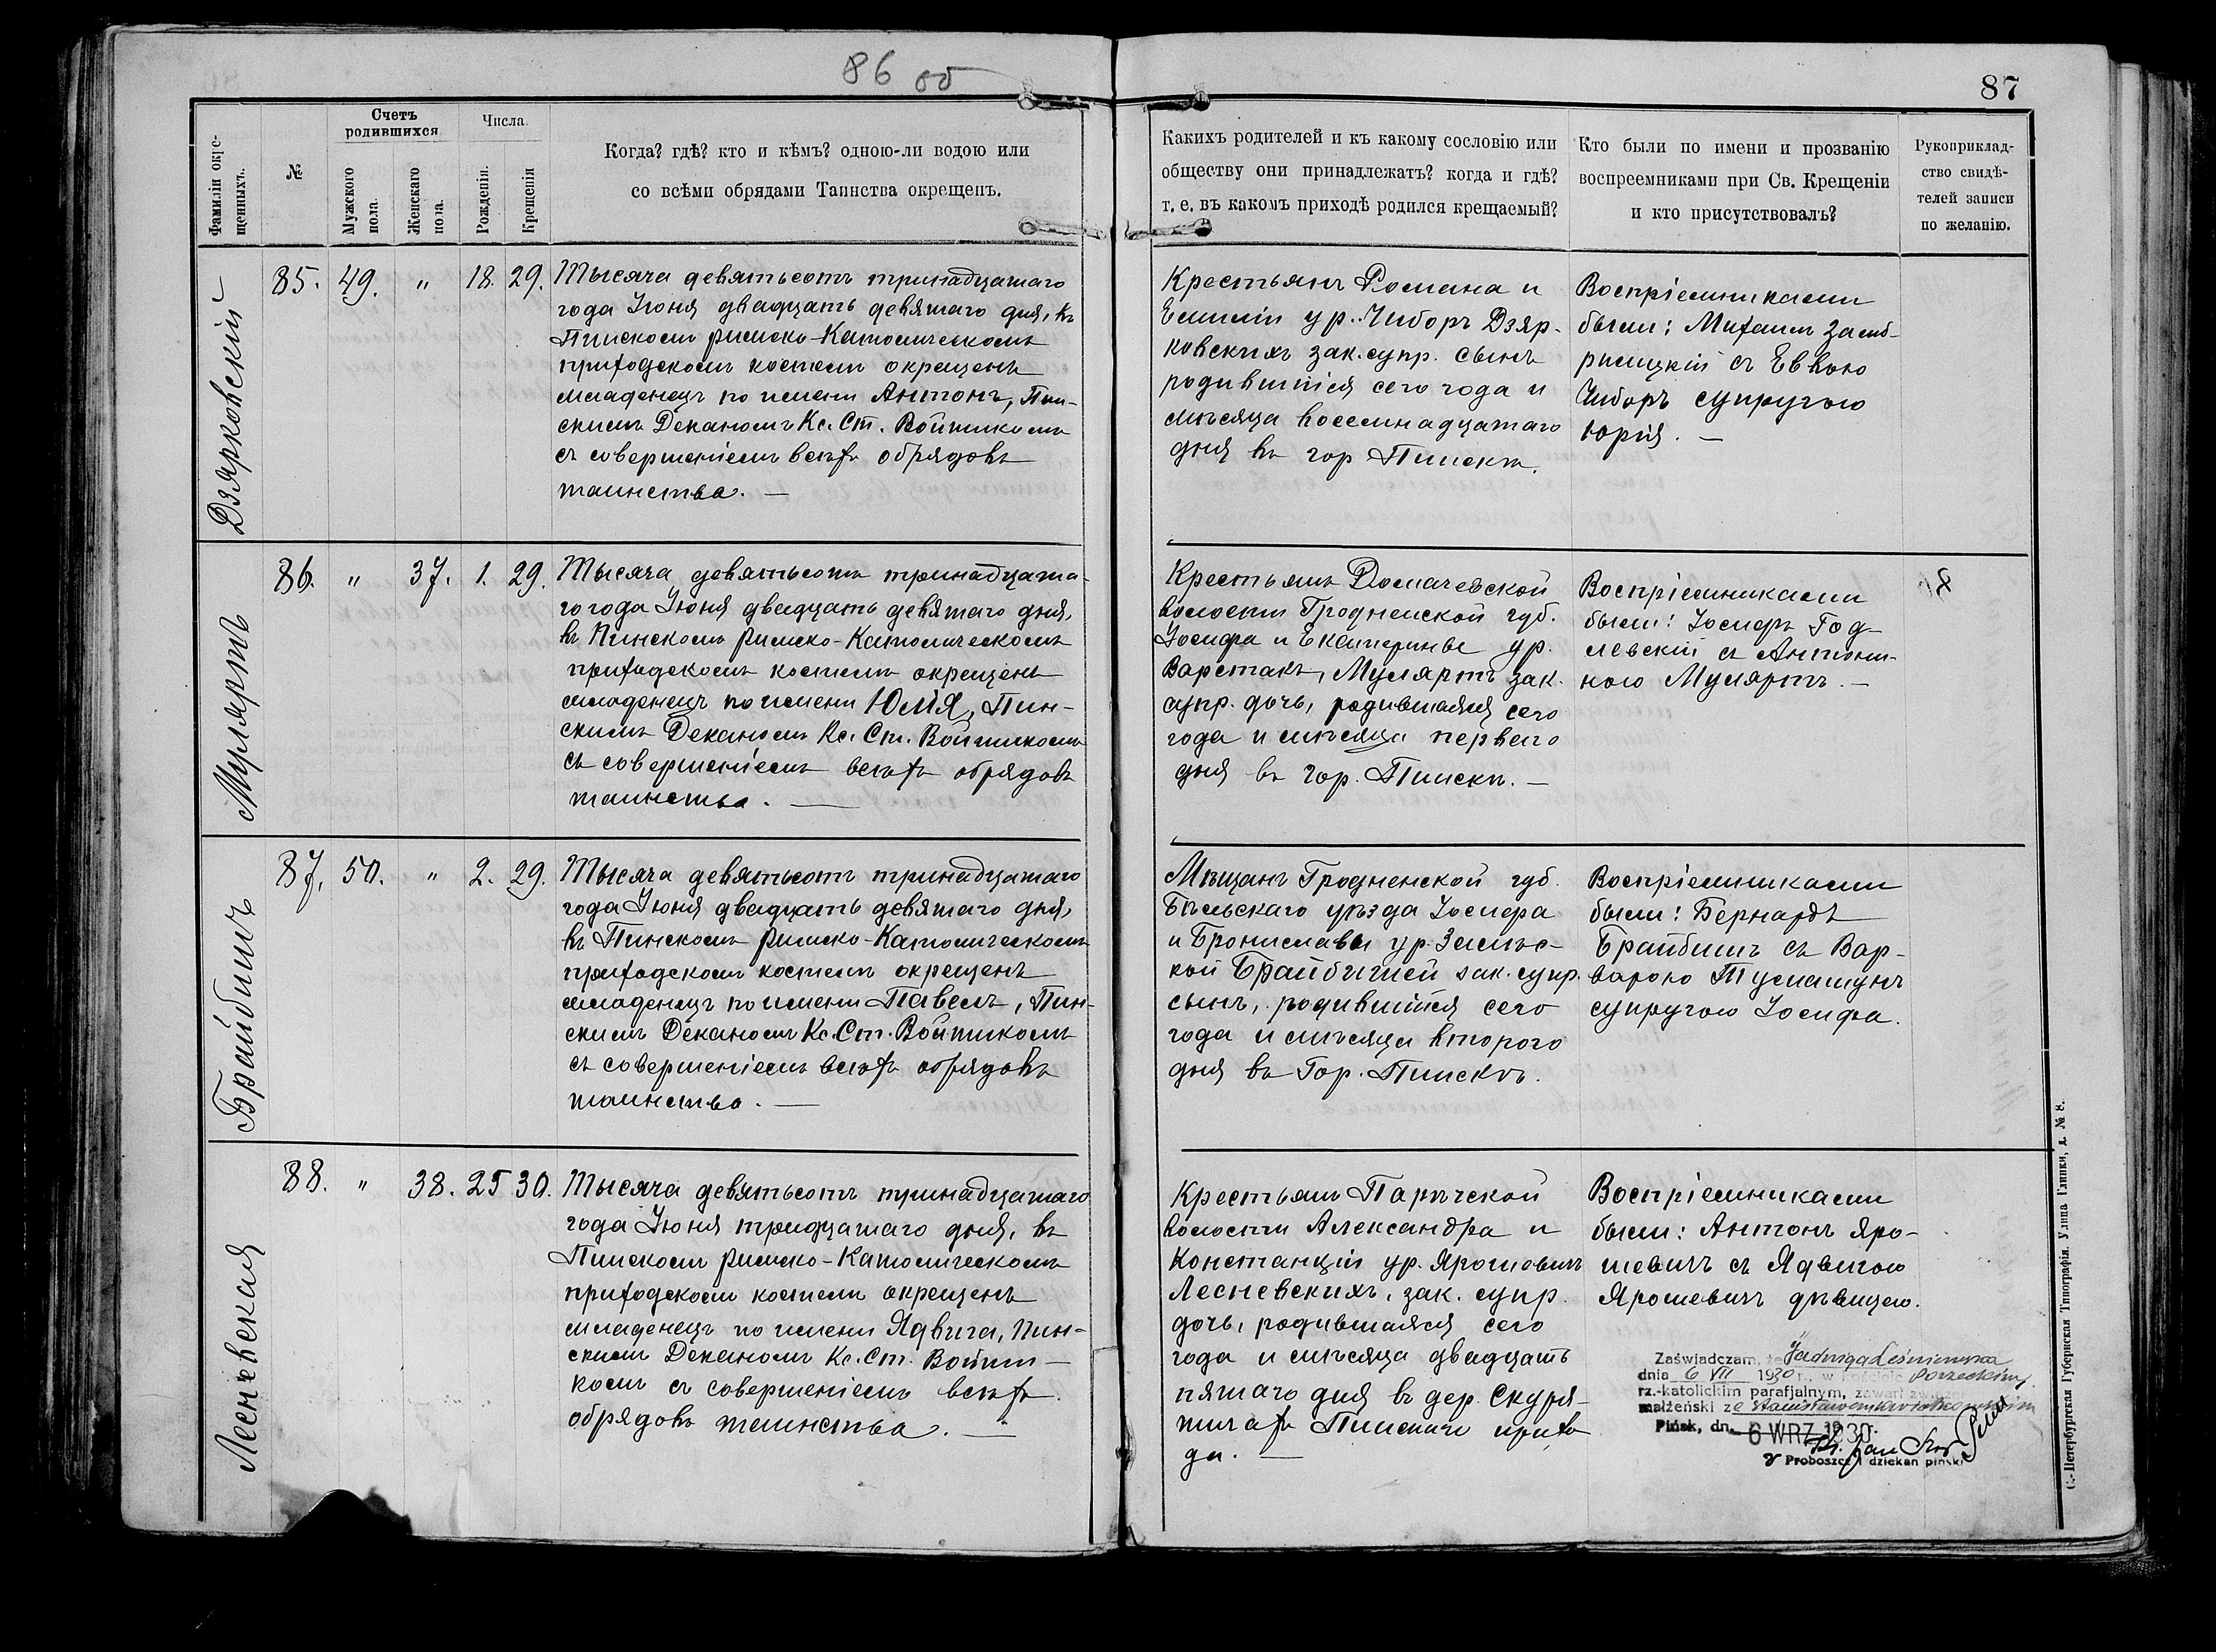 86 об
87
Фамиліи окре-
щенныхъ.
№
Счетъ
родившихся
Мужского
пола.
Женскаго
пола.
Числа.
Рожденія.
Крещенія
Когда? гдѣ? кто и кѣмъ? одною-ли водою или
со всѣми обрядами Таинства окрещенъ.
Какихъ родителей и къ какому сословію или
обществу они принадлежатъ? когда и гдѣ?
т. е. въ какомъ приходѣ родился крещаемый?
Кто были по имени и прозванію
воспреемниками при Св. Крещеніи
и кто присутствовалъ?
Рукоприклад-
ство свидѣ-
телей записи
по желанію.
Дзярковскій
85. 49. " 18. 29.
Тысяча девятьсотъ тринадцатаго
года Іюня двадцать девятаго дня, въ
Пинскомъ римско-Католическомъ
приходскомъ костелѣ окрещенъ
младенецъ по имени Антонъ, Пин-
скимъ Деканомъ Кс. Ст. Войтикомъ
съ совершеніемъ всѣхъ обрядовъ
таинства. —
Крестьянъ Романа и
Емиліи ур. Чиборъ Дзяр-
ковскихъ зак. супр. сынъ
родившійся сего года и
мѣсяца восемнадцатаго
дня въ гор Пинскѣ.
Воспріемниками
были: Михаилъ Замб-
рижицкій съ Еввою
Чиборъ супругою
Юрія. —
Муляртъ
86. " 37. 1. 29.
Тысяча девятьсотъ тринадцата-
го года Іюня двадцать девятаго дня,
въ Пинскомъ Римско-Католическомъ
приходскомъ костелѣ окрещенъ
младенецъ по имени Юлія, Пин-
скимъ Деканомъ Кс. Ст. Войтикомъ
съ совершеніемъ всѣхъ обрядовъ
таинства. —
Крестьянъ Домачевской
волости Гродненской губ.
Іосифа и Екатерины ур.
Варстакъ, Муляртъ зак.
супр. дочь, родившаяся сего
года и мѣсяца перваго
дня въ гор. Пинскѣ. —
Воспріемниками
были: Іосифъ Год-
левскій съ Антони-
ною Мулярть. —
Брайбишъ
87. 50. " 2. 29.
Тысяча девятьсотъ тринадцатаго
года Іюня двадцать девятаго дня,
въ Пинскомъ Римско-Католическомъ
приходскомъ костелѣ окрещенъ
младенецъ по имени Павелъ, Пин-
скимъ Деканомъ Кс. Ст. Войтикомъ
съ совершеніемъ всѣхъ обрядовъ
таинства. —
Мѣщанъ Гродненской губ.
Бѣльскаго уѣзда Іосифа
и Брониславы ур.
кой Брайбишей зак. супр.
сынъ, родившійся сего
года и мѣсяца второго
дня въ Гор. Пинскѣ.
Воспріемниками
были: Бернардъ
Брайбишъ съ Вар-
варою Тумашунъ
супругою Іосифа.
Лесневская
88. " 38. 25 30.
Тысяча девятьсотъ тринадцатаго
года Іюня тридцатаго дня, въ
Пинскомъ Римско-Католическомъ
приходскомъ костелѣ окрещенъ
младенецъ по имени Ядвига, Пин-
скимъ Деканомъ Кс. Ст. Войти-
комъ съ совершеніемъ всѣхъ
обрядовъ таинства. —
Крестьянъ Парѣчской
волости Александра и
Констанціи ур. Ярошевичъ
Лесневскихъ, зак. супр.
дочь, родившаяся сего
года и мѣсяца двадцать
пятаго дня въ дер. Скуря-
тичахъ Пинскаго прихо
да. —
Воспріемниками
были: Антонъ Яро-
шевичъ съ Ядвигою
Ярошевичъ дѣвицею.
Zaświadczam, że Jadwiga Leśniewska
dnia 6 VII 1930 r., w kościele Porzeckim
rz.-katolickim parafjalnym, zawarł związek
małżeński ze Stanisławem
Pińsk, dn. 6 WRZ. 1930
Ks. Jan
Proboszcz i dziekan piński
С.-Петербургская Губернская Типографія. Улица Глинки, д. № 8.